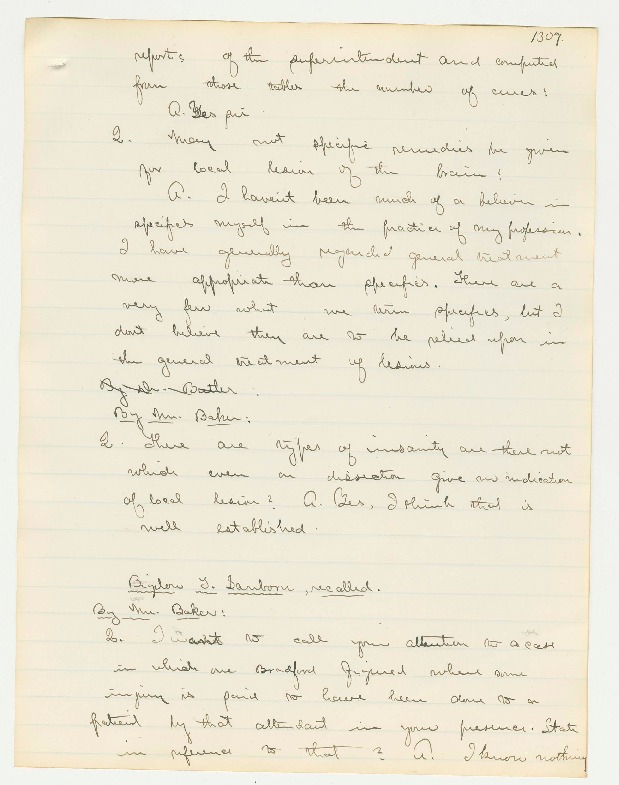 1307.
reports of the superintendent and computed
from those tables the number of cures?
A. Yes sir.
Q. May not specific remedies be given
for local lesion of the brain?
A. I haven't been much of a believer in
specifics myself in the practice of my profession.
I have generally regarded general treatment
more appropriate than specifics. There are a
very few what we term specifics, but I
don't believe they are to be relied upon in
the general treatment of lesions.
By Mr. Baker:
Q. There are types of insanity are there not
which even on dissection give no indication
of local lesion? A. Yes, I think that is
well established.
Bigelow T. Sanborn, recalled.
By Mr. Baker:
Q. I want to call your attention to a case
in which one Bradford figured where some
injury is said to have been done to a
patient by that attendant in your presence. State
in reference to that? A. I know nothing